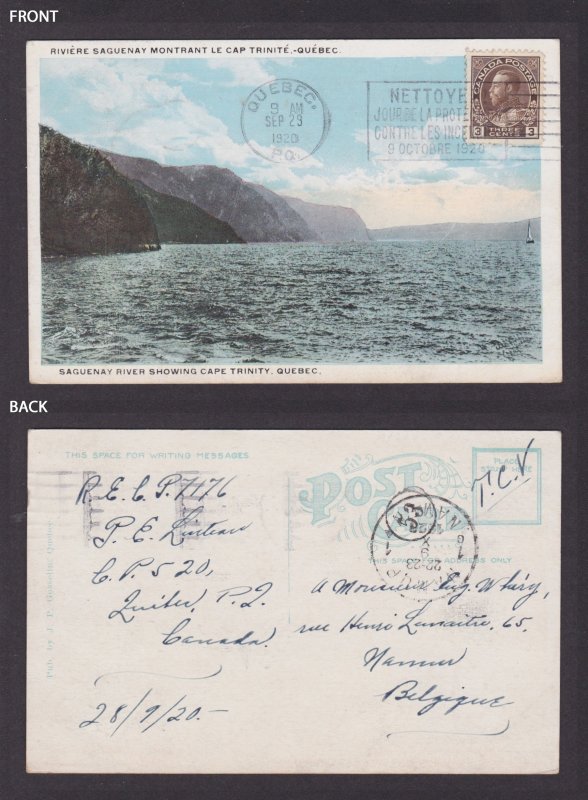 FRONT
RIVIÈRE SAGUENAY MONTRANT LE CAP TRINITÉ,-QUÉBEC.
CANADA POSTAGE
3 THREE CENTS 3
QUEBEC
9 AM
SEP 29
1920
P.Q.
NETTOYE
JOUR DE LA PROTE
CONTRE LES INCE
9 OCTOBRE 1920
SAGUENAY RIVER SHOWING CAPE TRINITY, QUEBEC.
BACK
THIS SPACE FOR WRITING MESSAGES
POST
PLACE
STAMP HERE
T.C.V
R.E.C.P. 7176
P. E.
C.P. 520,
Québec, P.Q.
Canada.
28/9/20.-
THIS SPACE FOR ADDRESS ONLY
NAM
22-23
A Monsieur Eug.
rue Henri Lemaitre, 65.
Namur
Belgique
Pub. by J. P.
Quebec